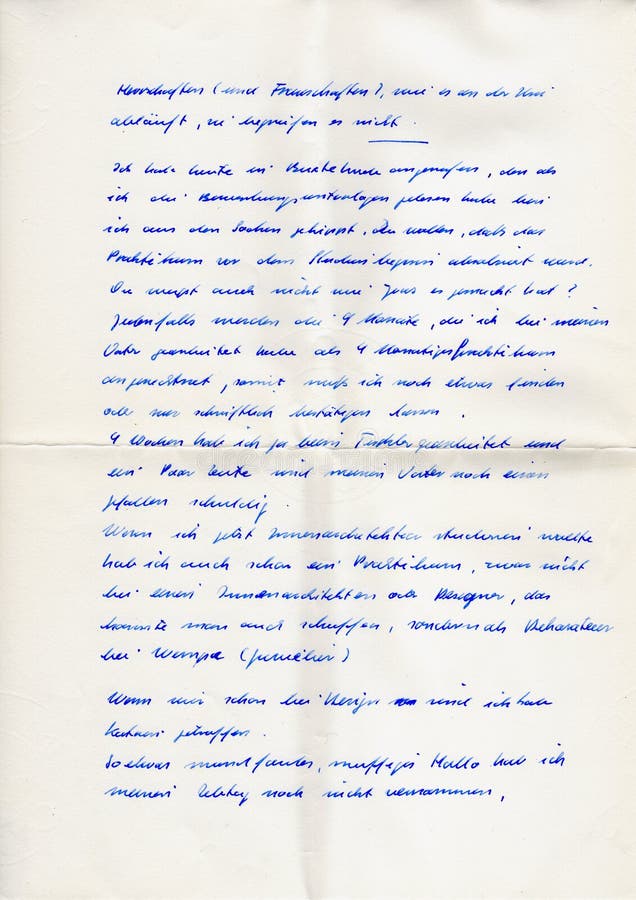 Herrschaften (und Frauschaften), wie es an der Uni
abläuft, sie begreifen es nicht.
Ich habe heute in Buxtehude angerufen, denn als
ich die Bewerbungsunterlagen gelesen habe bin
ich aus den Socken gekippt. Die wollen, daß das
Praktikum vor dem Studienbeginn absolviert wird.
Du weißt auch nicht wie Jens es gemacht hat?
Jedenfalls werden die 4 Monate, die ich bei meinem
Vater gearbeitet habe als 4 Monatiges Praktikum
angerechnet, somit muß ich noch etwas finden
oder nur schriftlich bestätigen lassen.
4 Wochen hab ich ja beim Tischler gearbeitet und
ein Paar Leute sind meinem Vater noch einen
gefallen schuldig.
Wenn ich jetzt Innenarchitektur studieren wollte
hab ich auch schon ein Praktikum, zwar nicht
bei einem Innenarchitekten oder Designer, das
könnte man auch schaffen, sondern als Dekorateur
bei Wempe (Juwelier)
Wenn wir schon bei Design sind ich habe
getroffen.
So etwas mundfaules, muffiges Hallo hab ich
meinen Lebtag noch nicht vernommen,
dreamstime